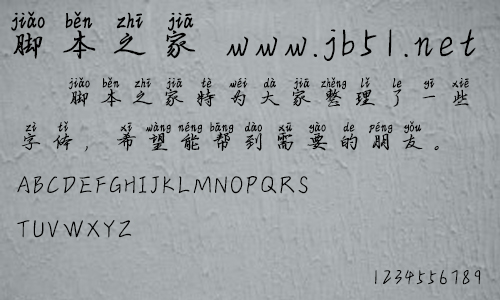 jiǎo běn zhī jiā
脚本之家 www.jb51.net
jiǎo běn zhī jiā tè wéi dà jiā zhěng lǐ le yī xiē
脚本之家特为大家整理了一些
zì tǐ xī wàng néng bāng dào xū yào de péng yǒu
字体，希望能帮到需要的朋友。
ABCDEFGHIJKLMNOPQRS
TUVWXYZ
1234556789